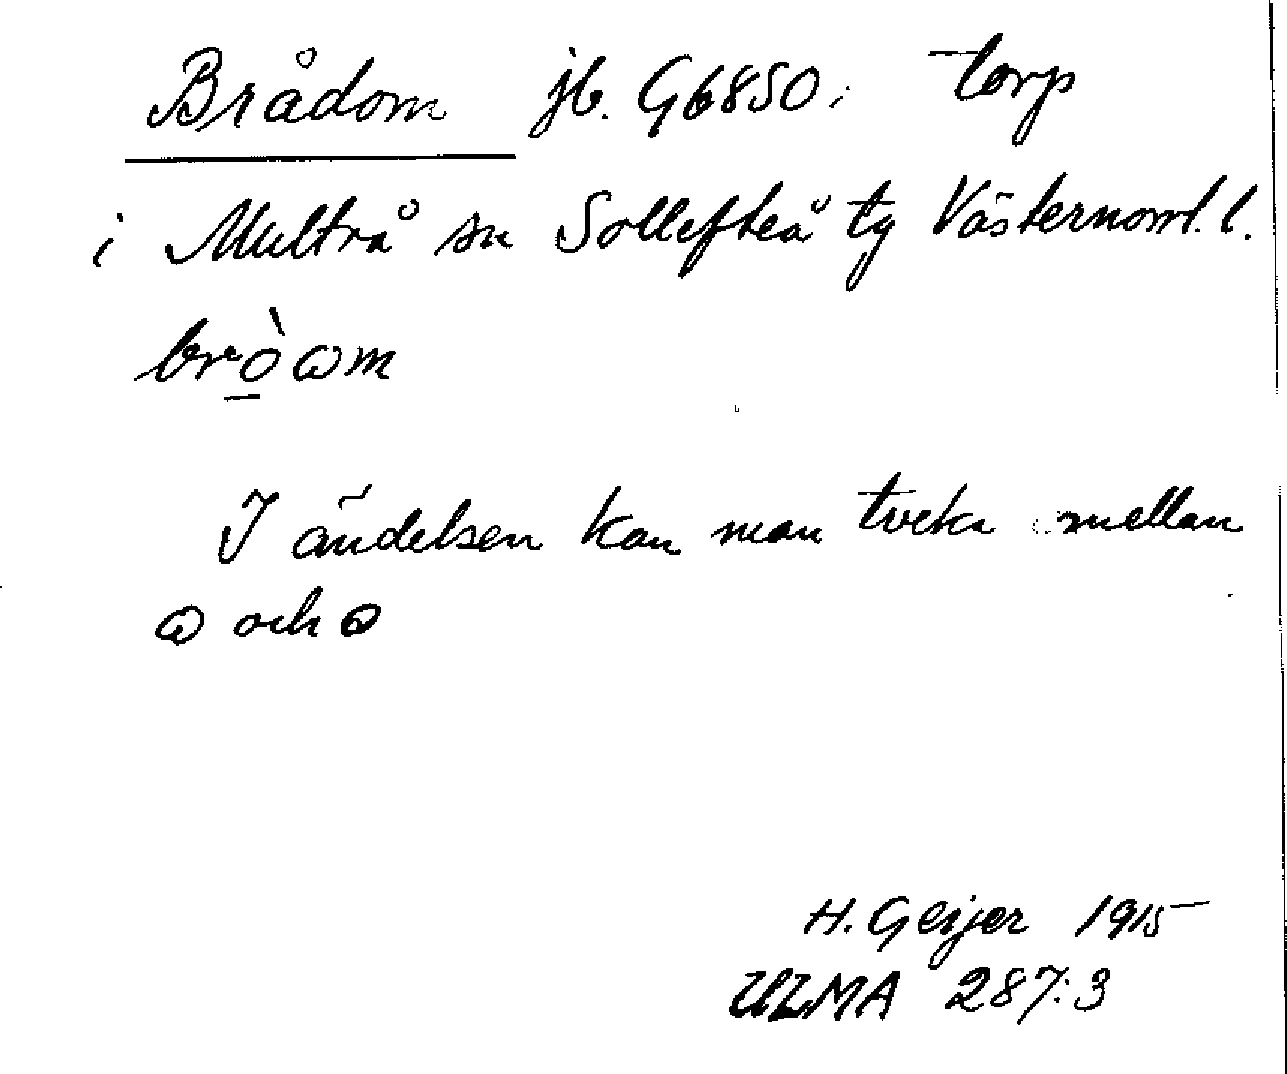 Brådom jb. G6850. torp
i Multrå sn Sollefteå tg Västernorrl. l.
brò̲ωm
I ändelsen kan man tveka mellan
och
H. Geijer 1915
ULMA 287:3